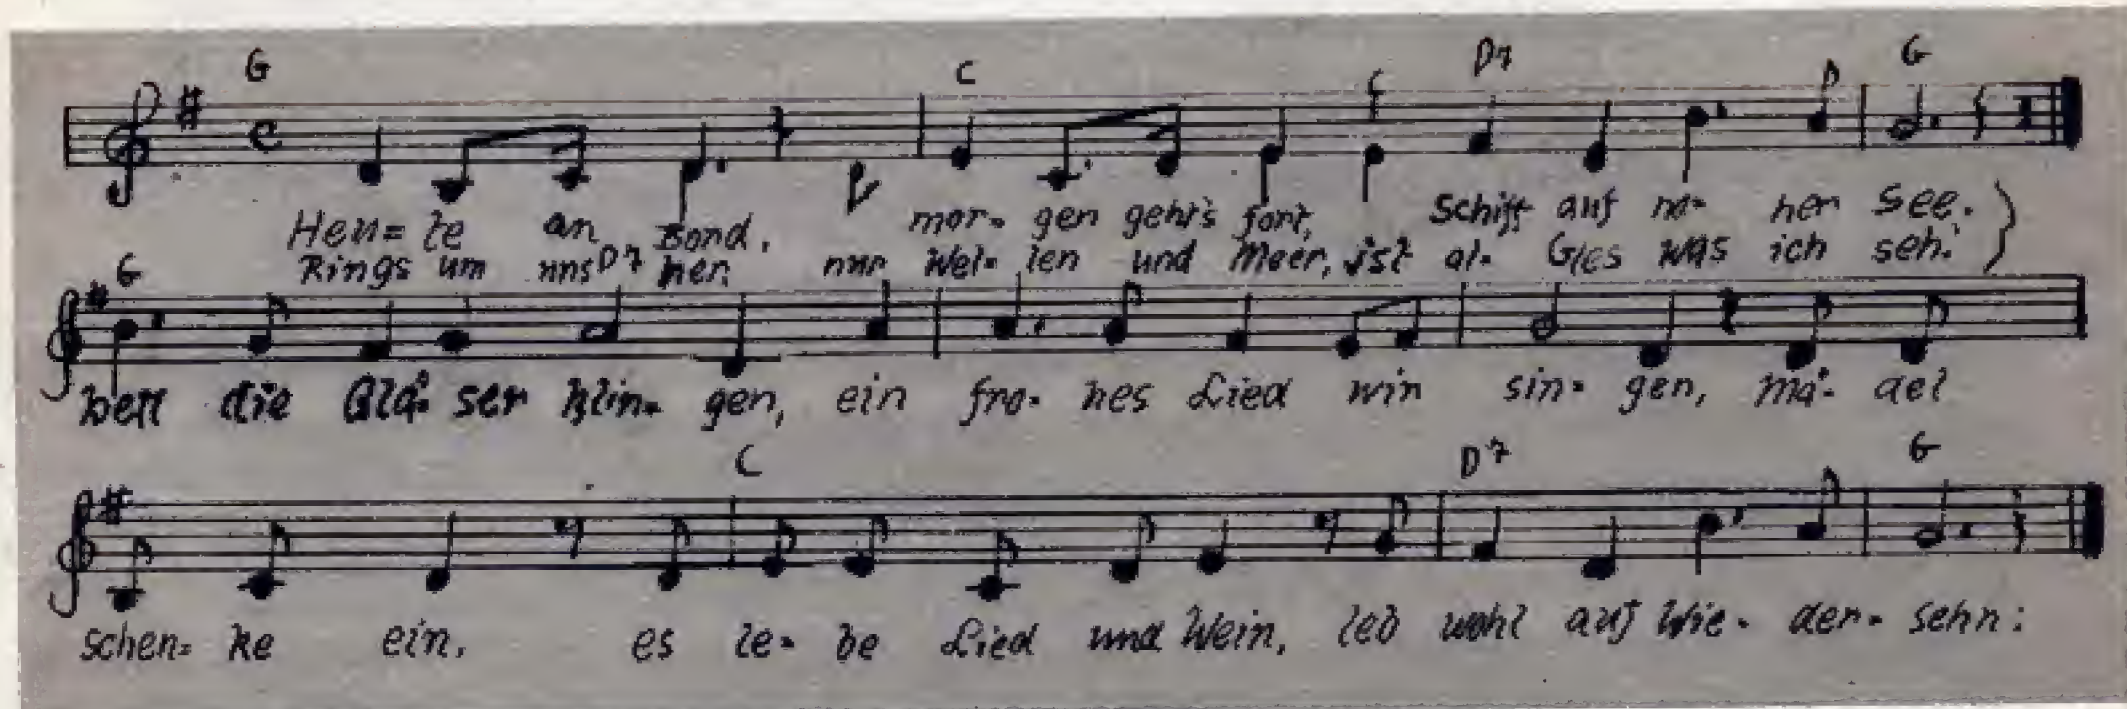 G C D7 G
Heu= te an Bord, mor- gen geht's fort, Schiff auf ho- her See.
Rings um uns her, nur Wel- len und Meer, ist al- les was ich seh!
G D7
hell die Glä- ser klin- gen, ein fro- hes Lied wir sin- gen, mä- del
C D7 G
schen= ke ein, es le- be Lied und Wein, leb wohl auf Wie- der- sehn!